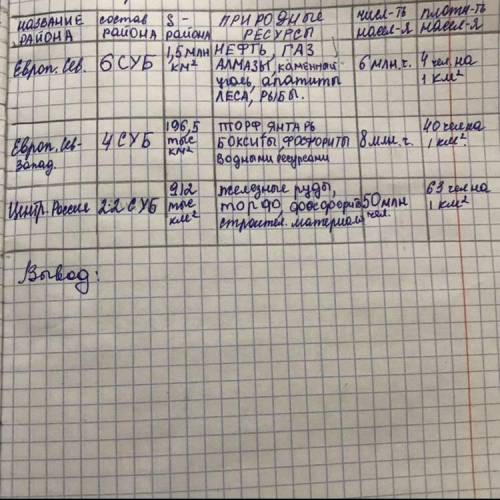 НАЗВАНИЕ РАЙОНА состав РАЙОНА S - РАЙОНА ПРИРОДНЫЕ РЕСУРСЫ числ-ть насел-я плотн-ть насел-я
Европ. Сев. 6 СУБ 1,5 млн км² НЕФТЬ, ГАЗ, АЛМАЗЫ, каменный уголь, апатиты ЛЕСА, РЫБЫ. 6 млн.ч. 4 чел.на 1 км²
Европ. Сев-Запад. 4 СУБ 196,5 тыс км² ТОРФ ЯНТАРЬ БОКСИТЫ ФОСФОРИТЫ водными ресурсами 8 млн.ч. 40 чел на 1 км²
Центр. Россия 22 СУБ 912 тыс км² железные руды, торф, фосфориты строител. материал 50 млн чел. 63 чел на 1 км²
Вывод: